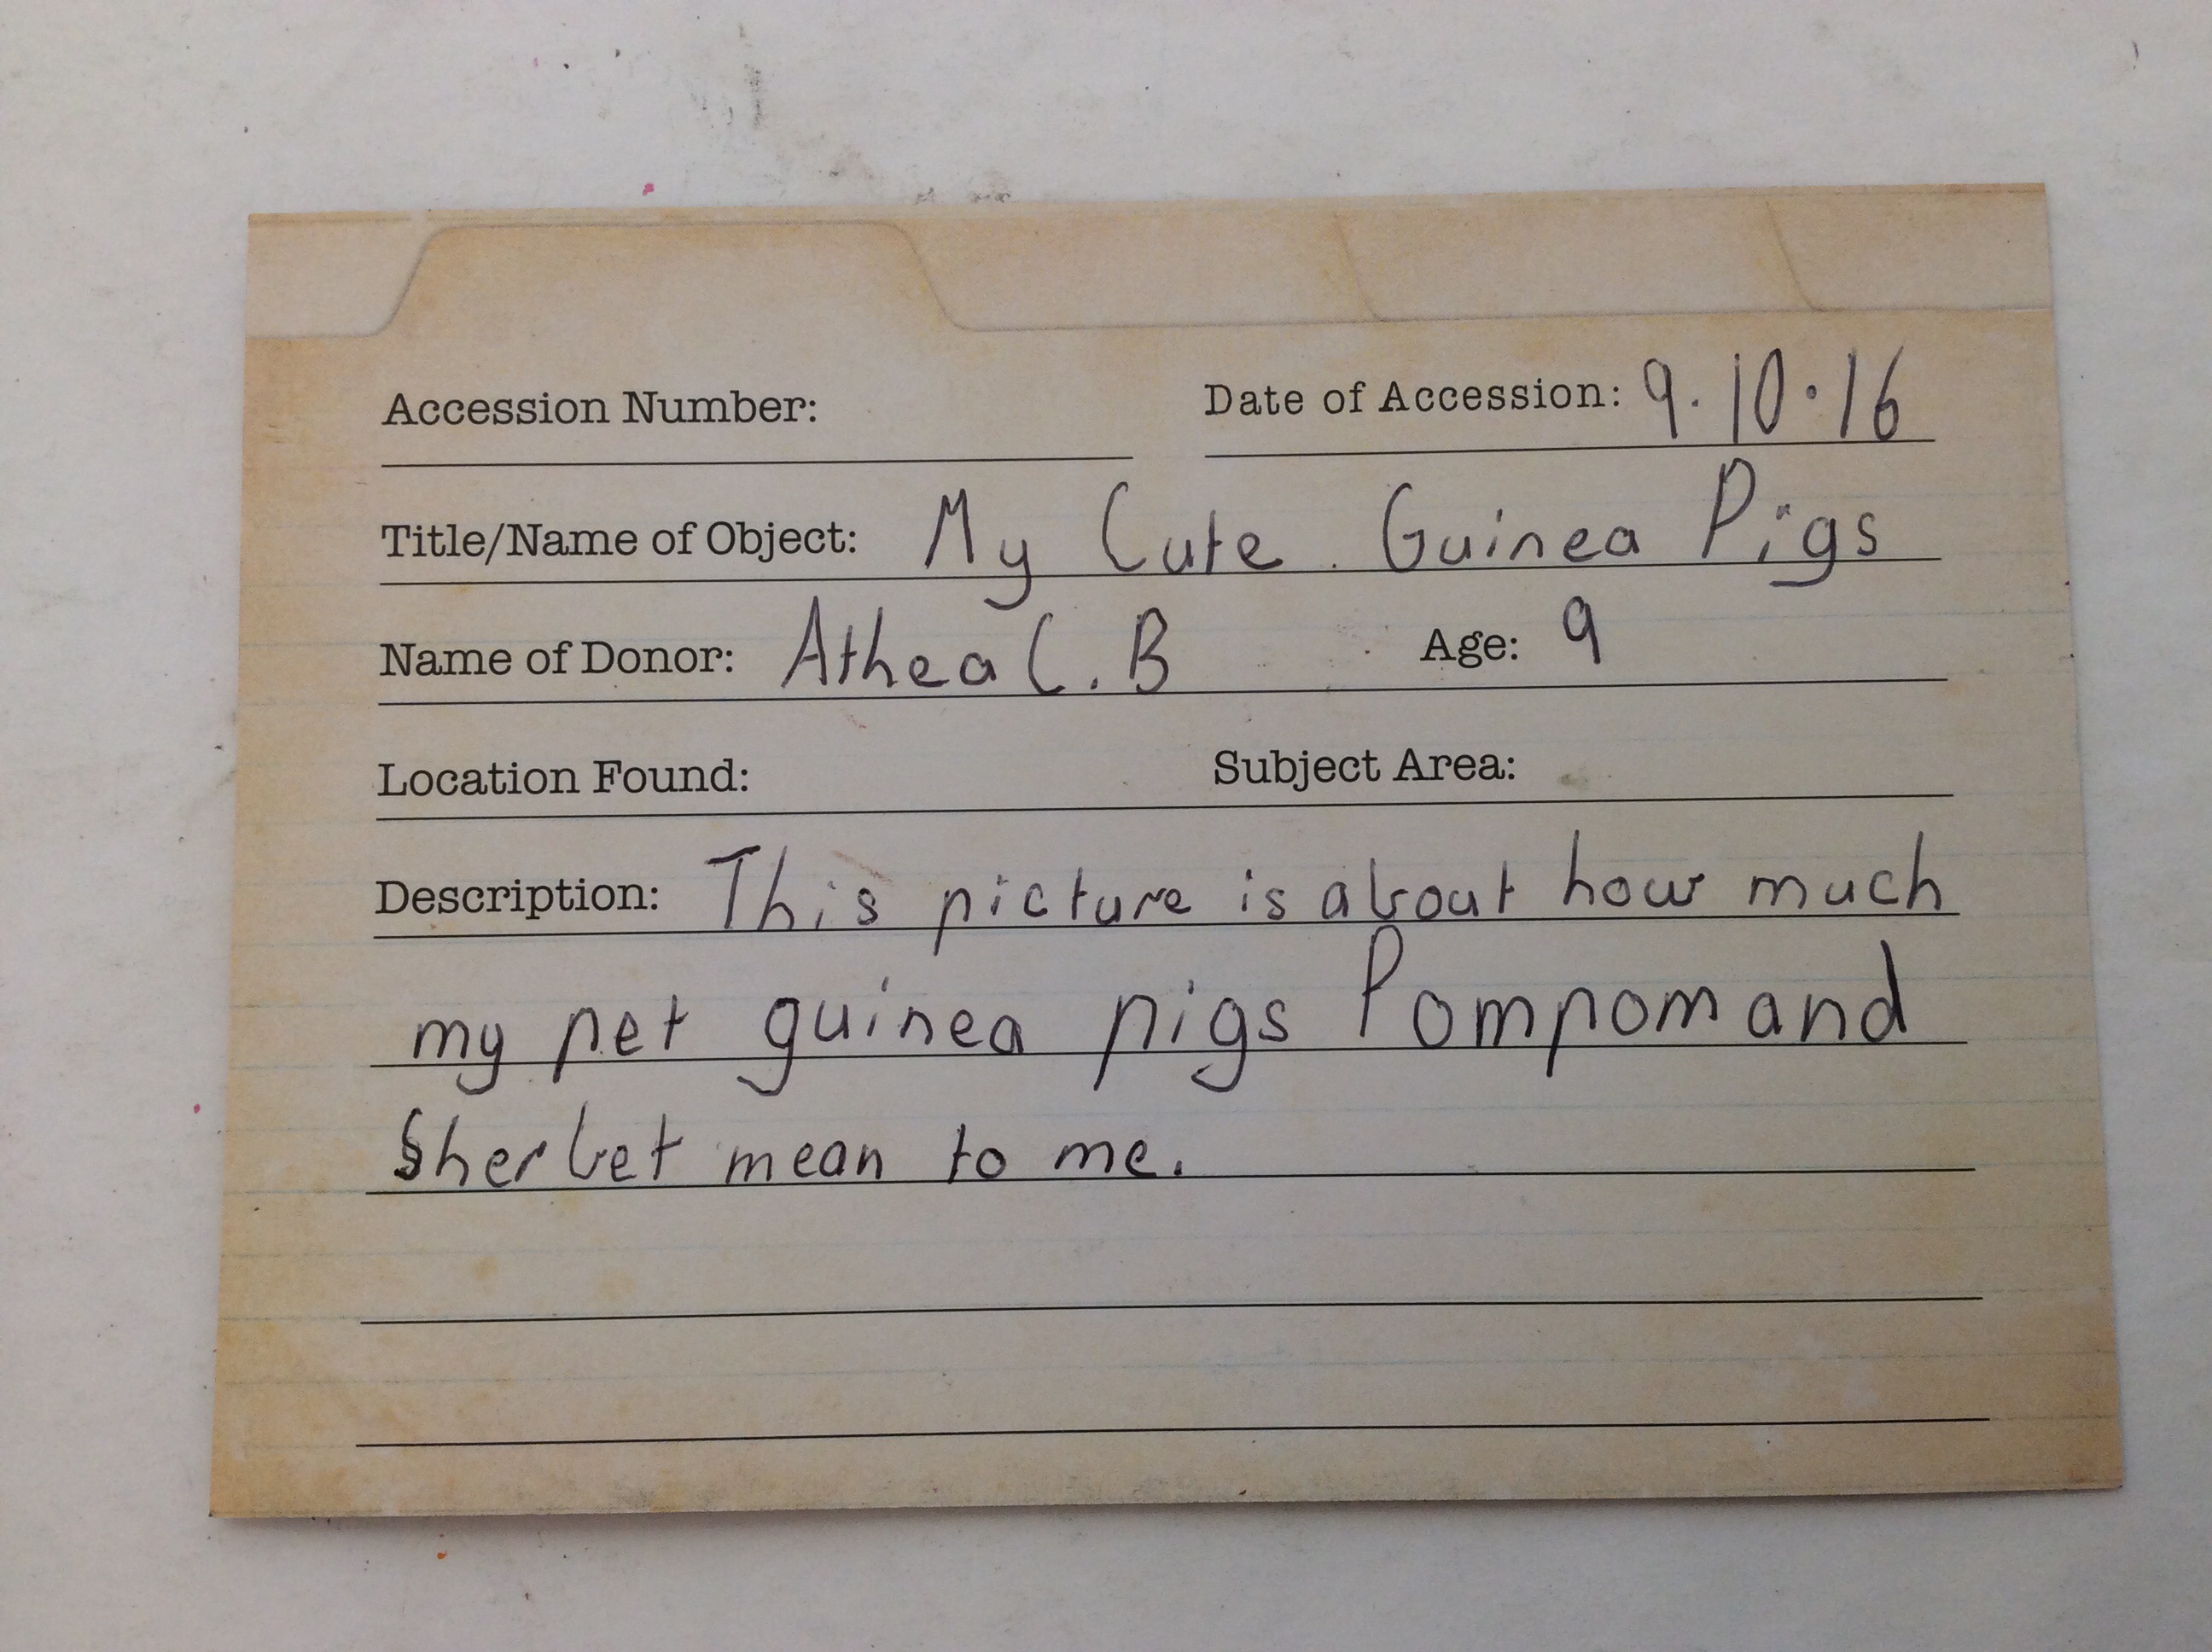 Accession Number: Date of Accession: 9.10.16
Title/Name of Object: My Cute Guinea Pigs
Name of Donor: Athea C.B Age: 9
Location Found: Subject Area:
Description: This picture is about how much
my pet guinea pigs Pompom and
Sherbet mean to me.